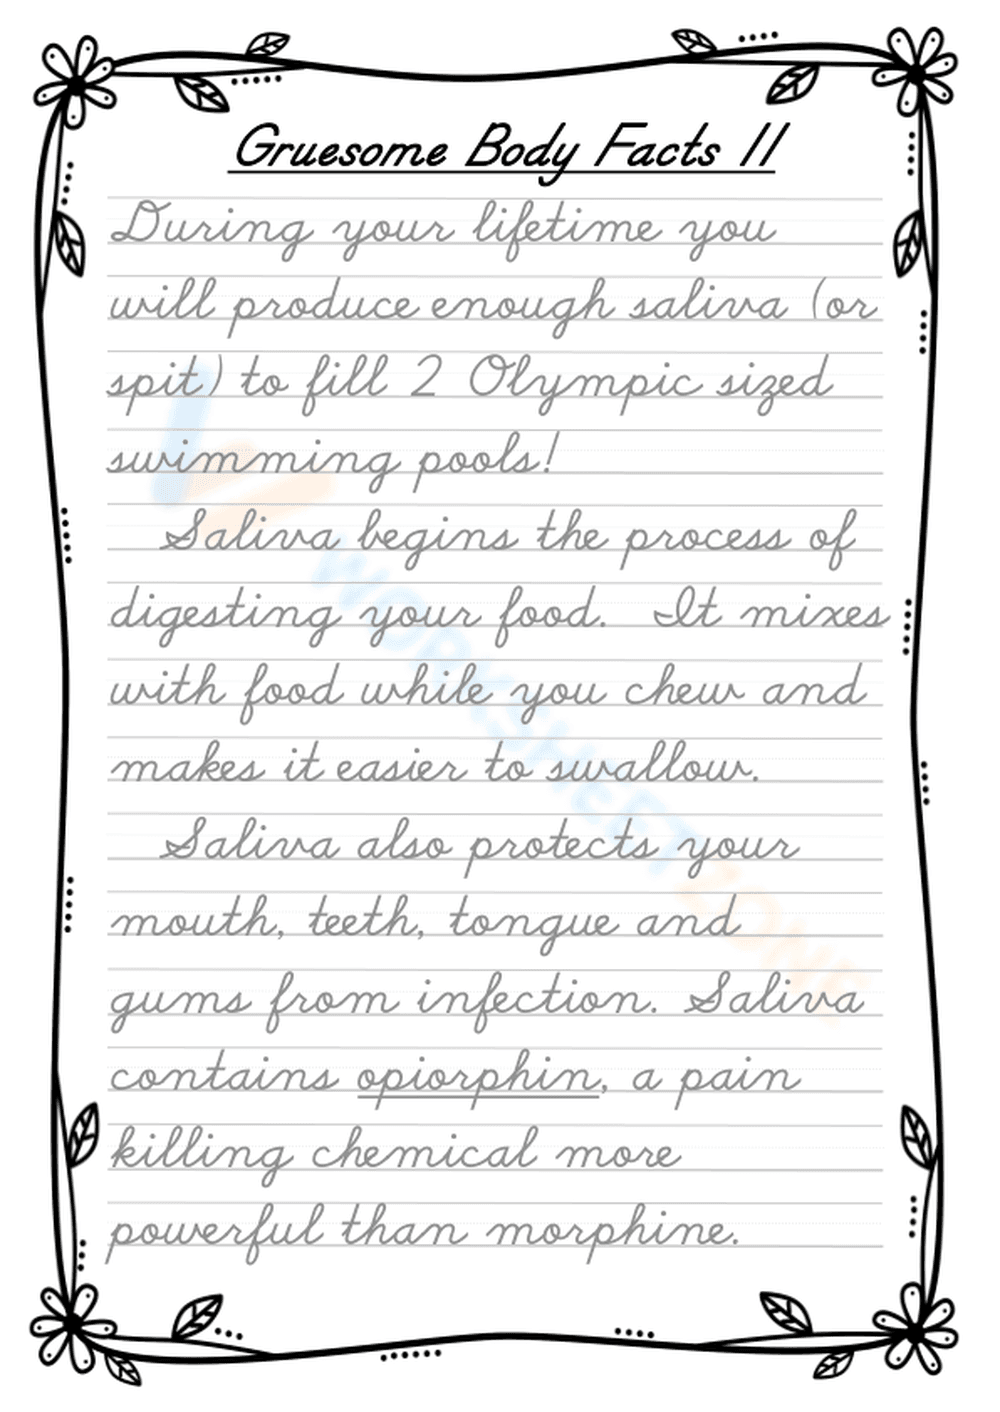 Gruesome Body Facts 11
During your lifetime you
will produce enough saliva (or
spit) to fill 2 Olympic sized
swimming pools!
Saliva begins the process of
digesting your food. It mixes
with food while you chew and
makes it easier to swallow.
Saliva also protects your
mouth, teeth, tongue and
gums from infection. Saliva
contains opiorphin, a pain
killing chemical more
powerful than morphine.
WORKSHEETZONE